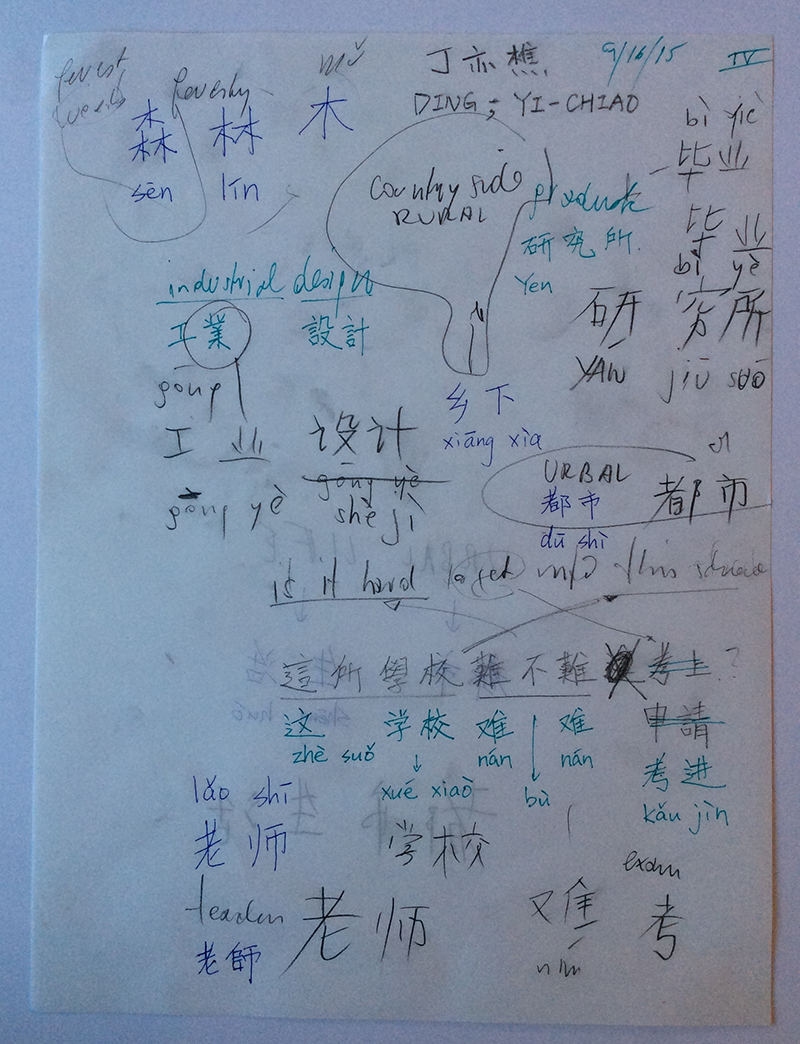 mǔ 丁亦樵 9/16/15 IV
forest forestry DING, YI-CHIAO
woods
森 林 木 bì yiè
sēn lín 毕业
Country side graduate
RURAL 研究所. 毕业
Yen bì yè
industrial design 研究所
工業 設計 YAN jiū suǒ
gōng 乡下
工业 设计 xiāng xìa
gōng yè
gōng yè shè jì
URBAL
都市 都市
dū shì
is it hard to get into this school
這所學校難不難 考上?
这 学校 难 难 申請
zhè suǒ nán nán 考进
xué xiaò bù kǎu jìn
lǎo shī
老师 学校
exam
老师 难 考
老師